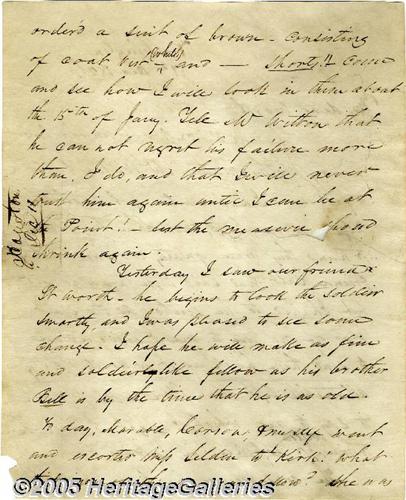 order'd a suit of brown - consisting
of coat vest (white) and — Shorts!! Come
and see how I will look in them about
the 15th of Jany. Tell Mr Wilton that
he can not regret his failure more
than I do, and that I will never
trust him again until I can be at
Point! - lest the measure should
shrink again.
Yesterday I saw our friend
worth - he begins to look the soldier
smartly and I was pleased to see some
change. I hope he will make as fine
and soldierlike fellow as his brother
Bill is by the time that he is as old.
To day, Marable, Carson, & myself went
and escorted Miss Selden to Kirk! What
she was
©2005 HeritageGalleries